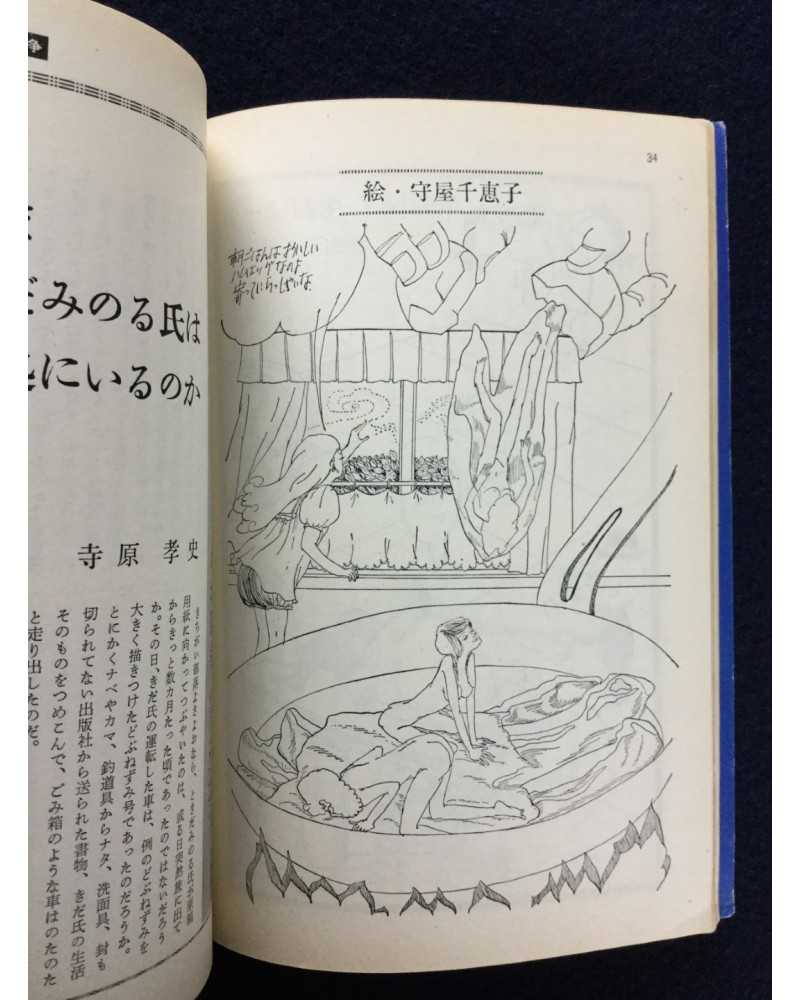 34
絵・守屋千恵子
朝ごはんはおいしい
ハムエッグなのよ
寄っていらっしゃいな
争
だみのる氏は
にいるのか
寺原孝史
用紙に向かってつぶやいたのは、或る日突然旅に出て
からきっと数カ月たった頃であったのではないだろう
か。その日、きだ氏の運転した車は、例のどぶねずみを
大きく描きつけたどぶねずみ号であったのだろうか。
とにかくナベやカマ、釣道具からナタ、洗面具、封も
切られてない出版社から送られた書物、きだ氏の生活
そのものをつめこんで、ごみ箱のような車はのたのた
と走り出したのだ。